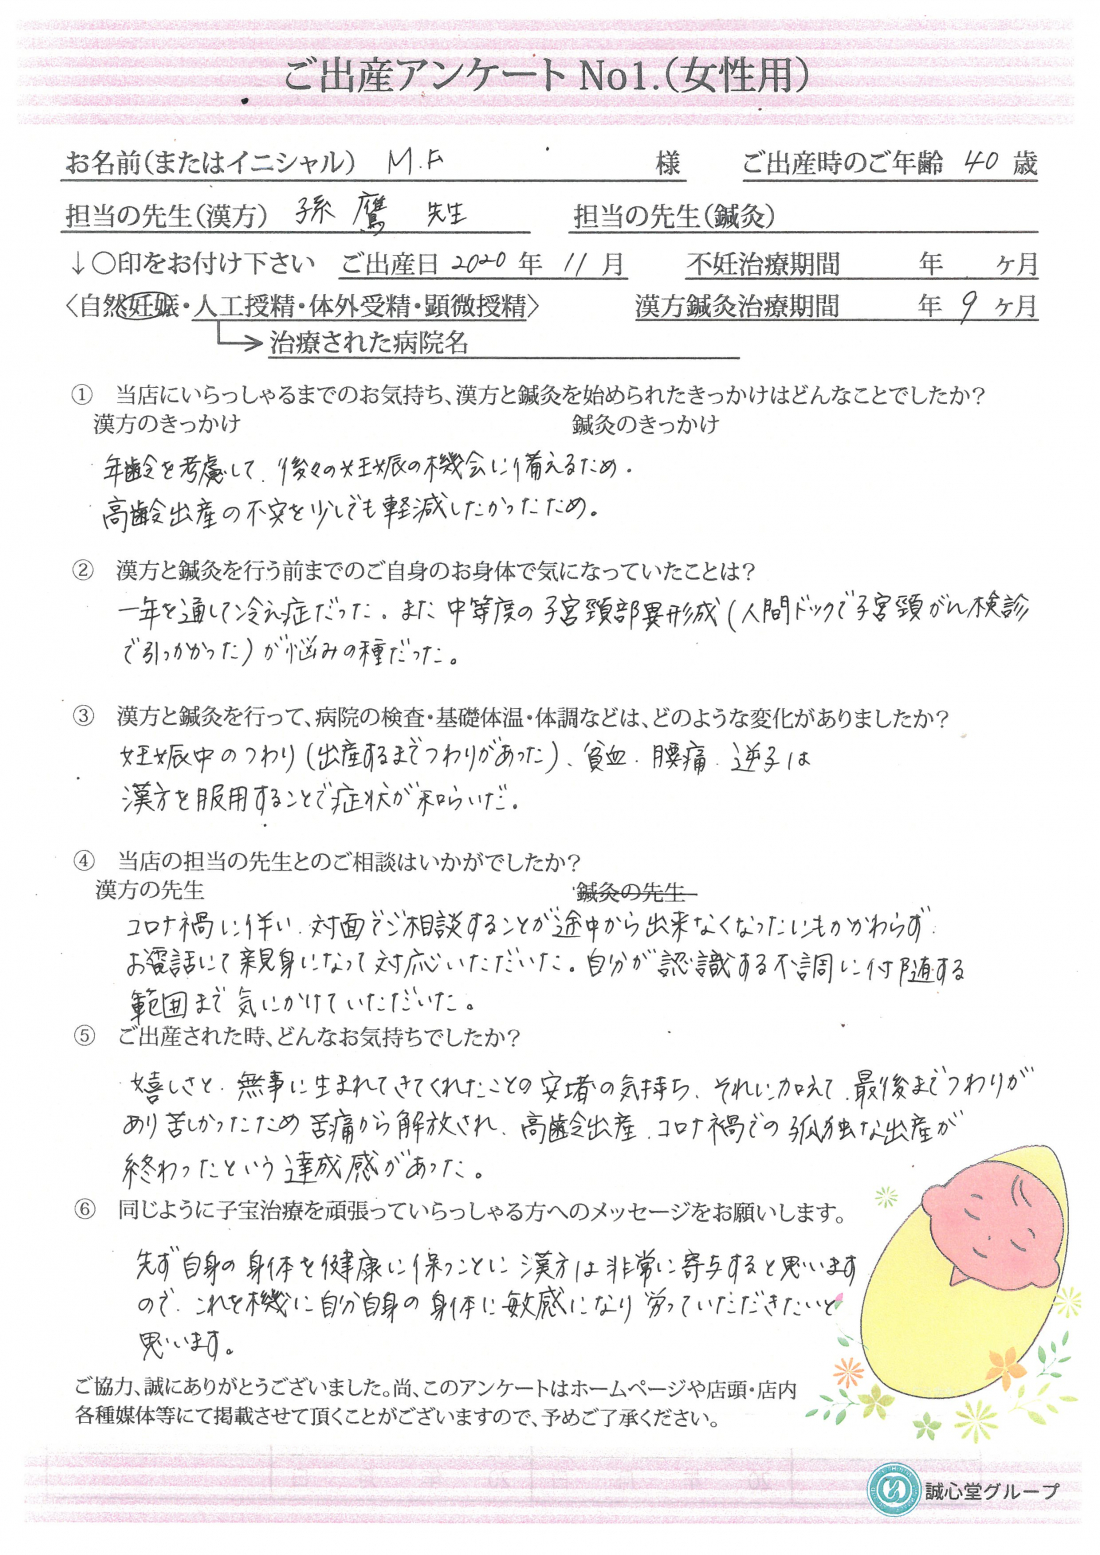 ご出産アンケート No1.（女性用）
お名前（またはイニシャル） M.F 様 ご出産時のご年齢 40 歳
担当の先生（漢方） 孫 鷹 先生 担当の先生（鍼灸）
↓〇印をお付け下さい ご出産日 2020 年 11 月 不妊治療期間 年 ヶ月
〈自然妊娠・人工授精・体外受精・顕微授精〉 漢方鍼灸治療期間 年 9 ヶ月
治療された病院名
① 当店にいらっしゃるまでのお気持ち、漢方と鍼灸を始められたきっかけはどんなことでしたか？
漢方のきっかけ 鍼灸のきっかけ
年齢を考慮して、後々の妊娠の機会に備えるため。
高齢出産の不安を少しでも軽減したかったため。
② 漢方と鍼灸を行う前までのご自身のお身体で気になっていたことは？
一年を通して冷え症だった。また中等度の子宮頸部異形成（人間ドックで子宮頸がん検診
で引っかかった）が悩みの種だった。
③ 漢方と鍼灸を行って、病院の検査・基礎体温・体調などは、どのような変化がありましたか？
妊娠中のつわり（出産するまでつわりがあった）、貧血、腰痛、逆子は
漢方を服用することで症状が和らいだ。
④ 当店の担当の先生とのご相談はいかがでしたか？
漢方の先生 鍼灸の先生
コロナ禍に伴い、対面でご相談することが途中から出来なくなったにもかかわらず、
お電話にて親身になって対応いただいた。自分が認識する不調に付随する
範囲まで気にかけていただいた。
⑤ ご出産された時、どんなお気持ちでしたか？
嬉しさと、無事に生まれてきてくれたことの安堵の気持ち、それに加えて、最後までつわりが
あり苦しかったため苦痛から解放され、高齢出産、コロナ禍での孤独な出産が
終わったという達成感があった。
⑥ 同じように子宝治療を頑張っていらっしゃる方へのメッセージをお願いします。
先ず自身の身体を健康に保つことに漢方は非常に寄与すると思います
ので、これを機に自分自身の身体に敏感になり労っていただきたいと
思います。
ご協力、誠にありがとうございました。尚、このアンケートはホームページや店頭・店内
各種媒体等にて掲載させて頂くことがございますので、予めご了承ください。
誠心堂グループ